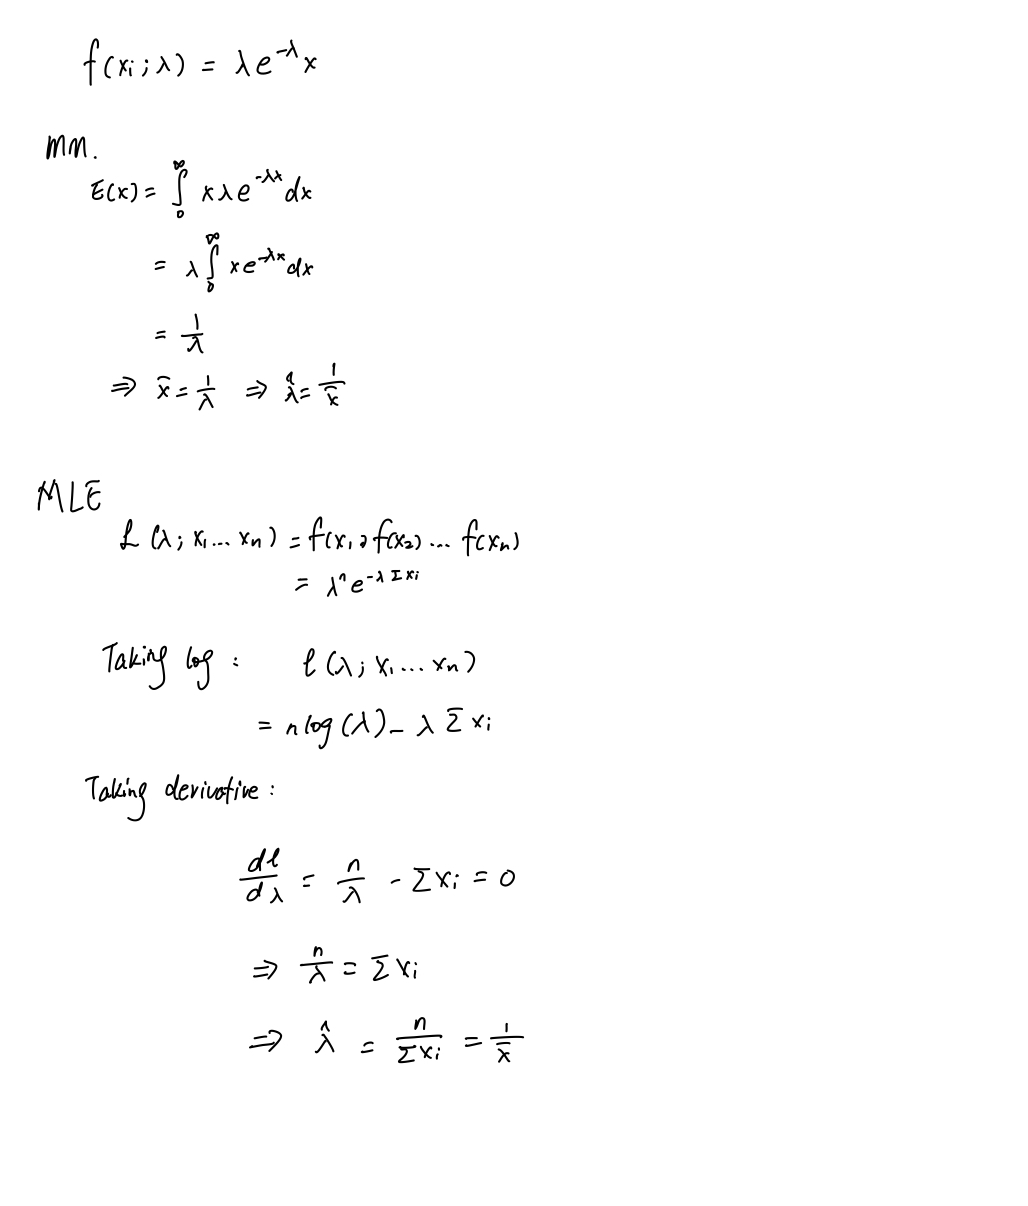 f(xᵢ; λ) = λe^{-λ}x
MM.
E(x) = ∫₀^∞ xλe^{-λx}dx
= λ∫₀^∞ xe^{-λx}dx
= 1/λ
⇒ x̄ = 1/λ ⇒ λ̂ = 1/x̄
MLE
L(λ; x₁... xₙ) = f(x₁) f(x₂) ... f(xₙ)
= λⁿe^{-λΣxᵢ}
Taking log : ℓ(λ; x₁... xₙ)
= n log(λ) - λ Σxᵢ
Taking derivative :
dℓ/dλ = n/λ - Σxᵢ = 0
⇒ n/λ = Σxᵢ
⇒ λ̂ = n/Σxᵢ = 1/x̄